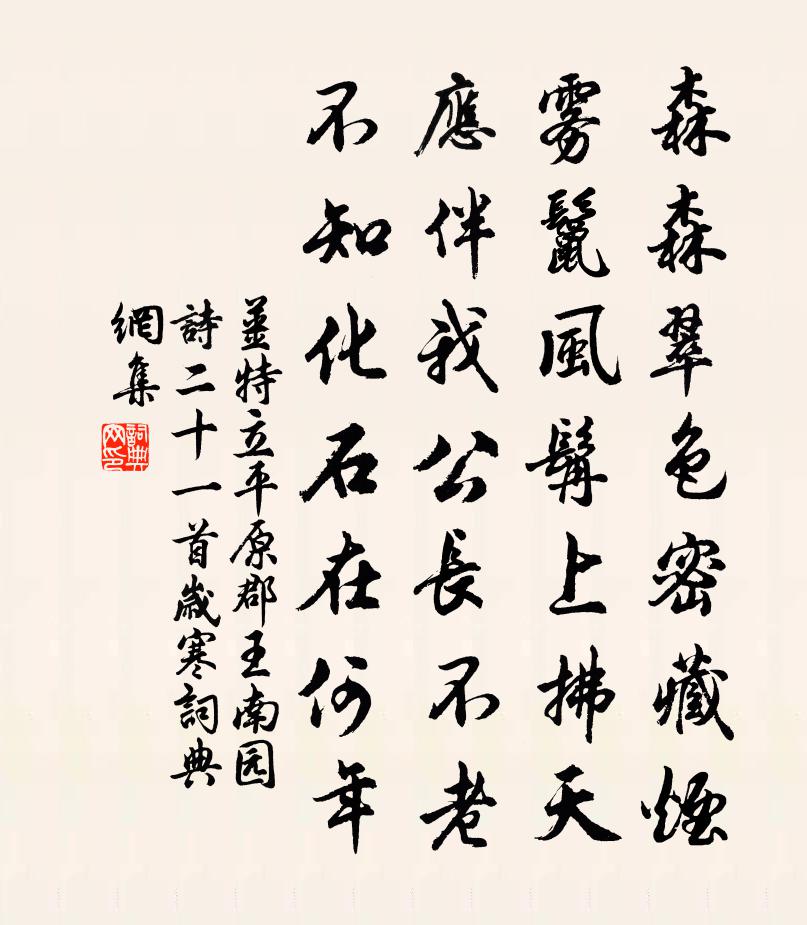 森森翠色密藏煙
雾鬣風髯上拂天
應伴我公長不老
不知化石在何年
姜特立平原郡王南园
詩二十一首歲寒詞典
網集
詞典网印